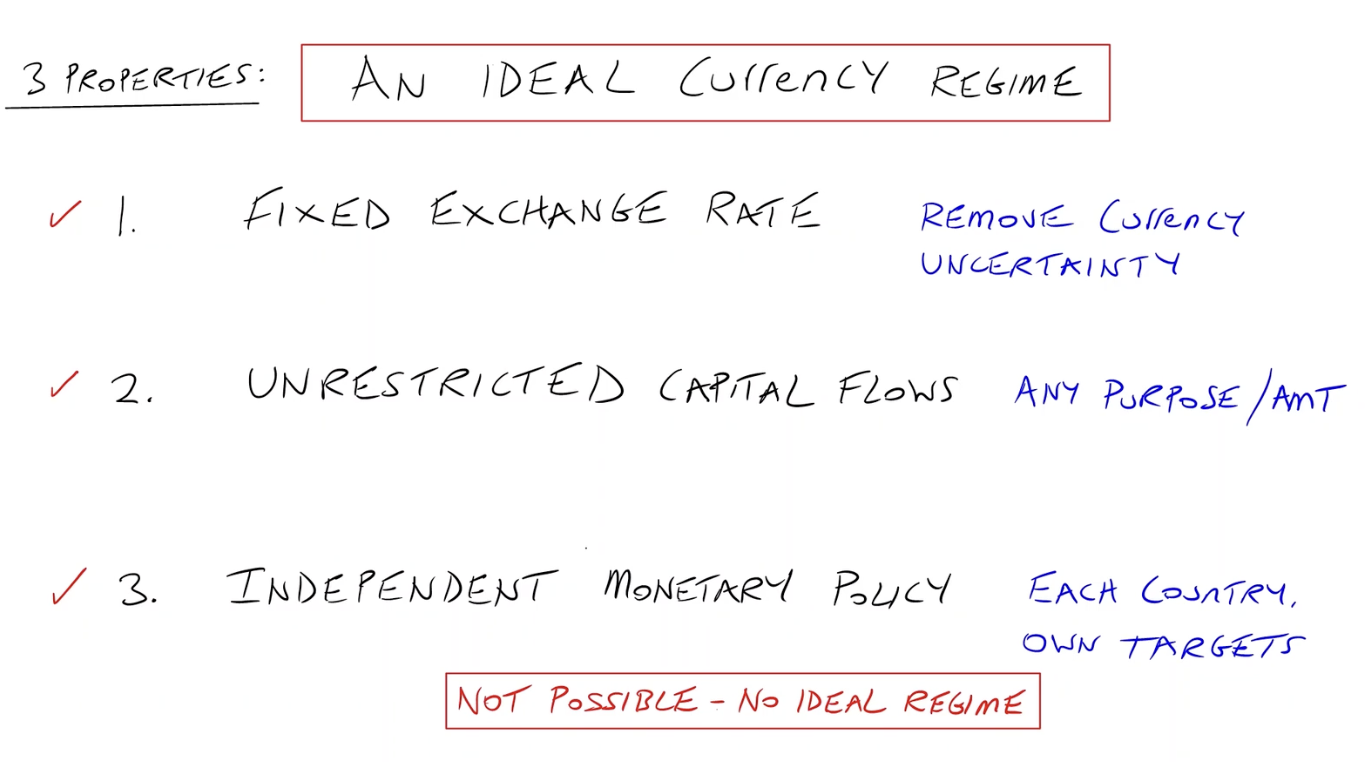 3 PROPERTIES: AN IDEAL CurrenCY REGIME
✓ 1. FIXED EXCHANGE RATE REMOVE CurrenCY
UNCERTAINTY
✓ 2. UNRESTRICTED CAPITAL FLOWS ANY PURPOSE/AMT
✓ 3. INDEPENDENT MONETARY POLICY EACH COUNTRY,
OWN TARGETS
NOT POSSIBLE - NO IDEAL REGIME